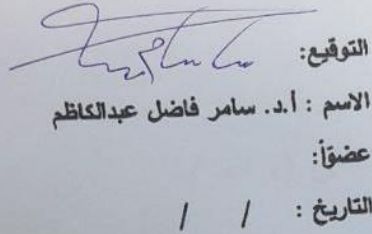 التوقيع:
الاسم : أ.د. سامر فاضل عبدالكاظم
عضوًا:
التاريخ : / /